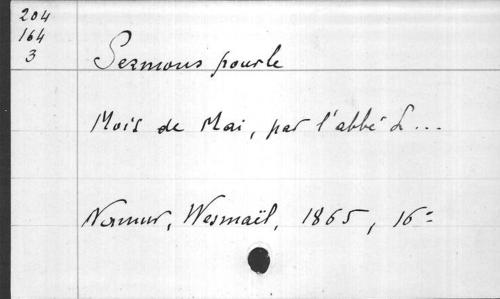 204
164
3
Sermons pour le
Mois de Mai, par l'abbé L...
Namur, Wesmaël, 1865, 16=